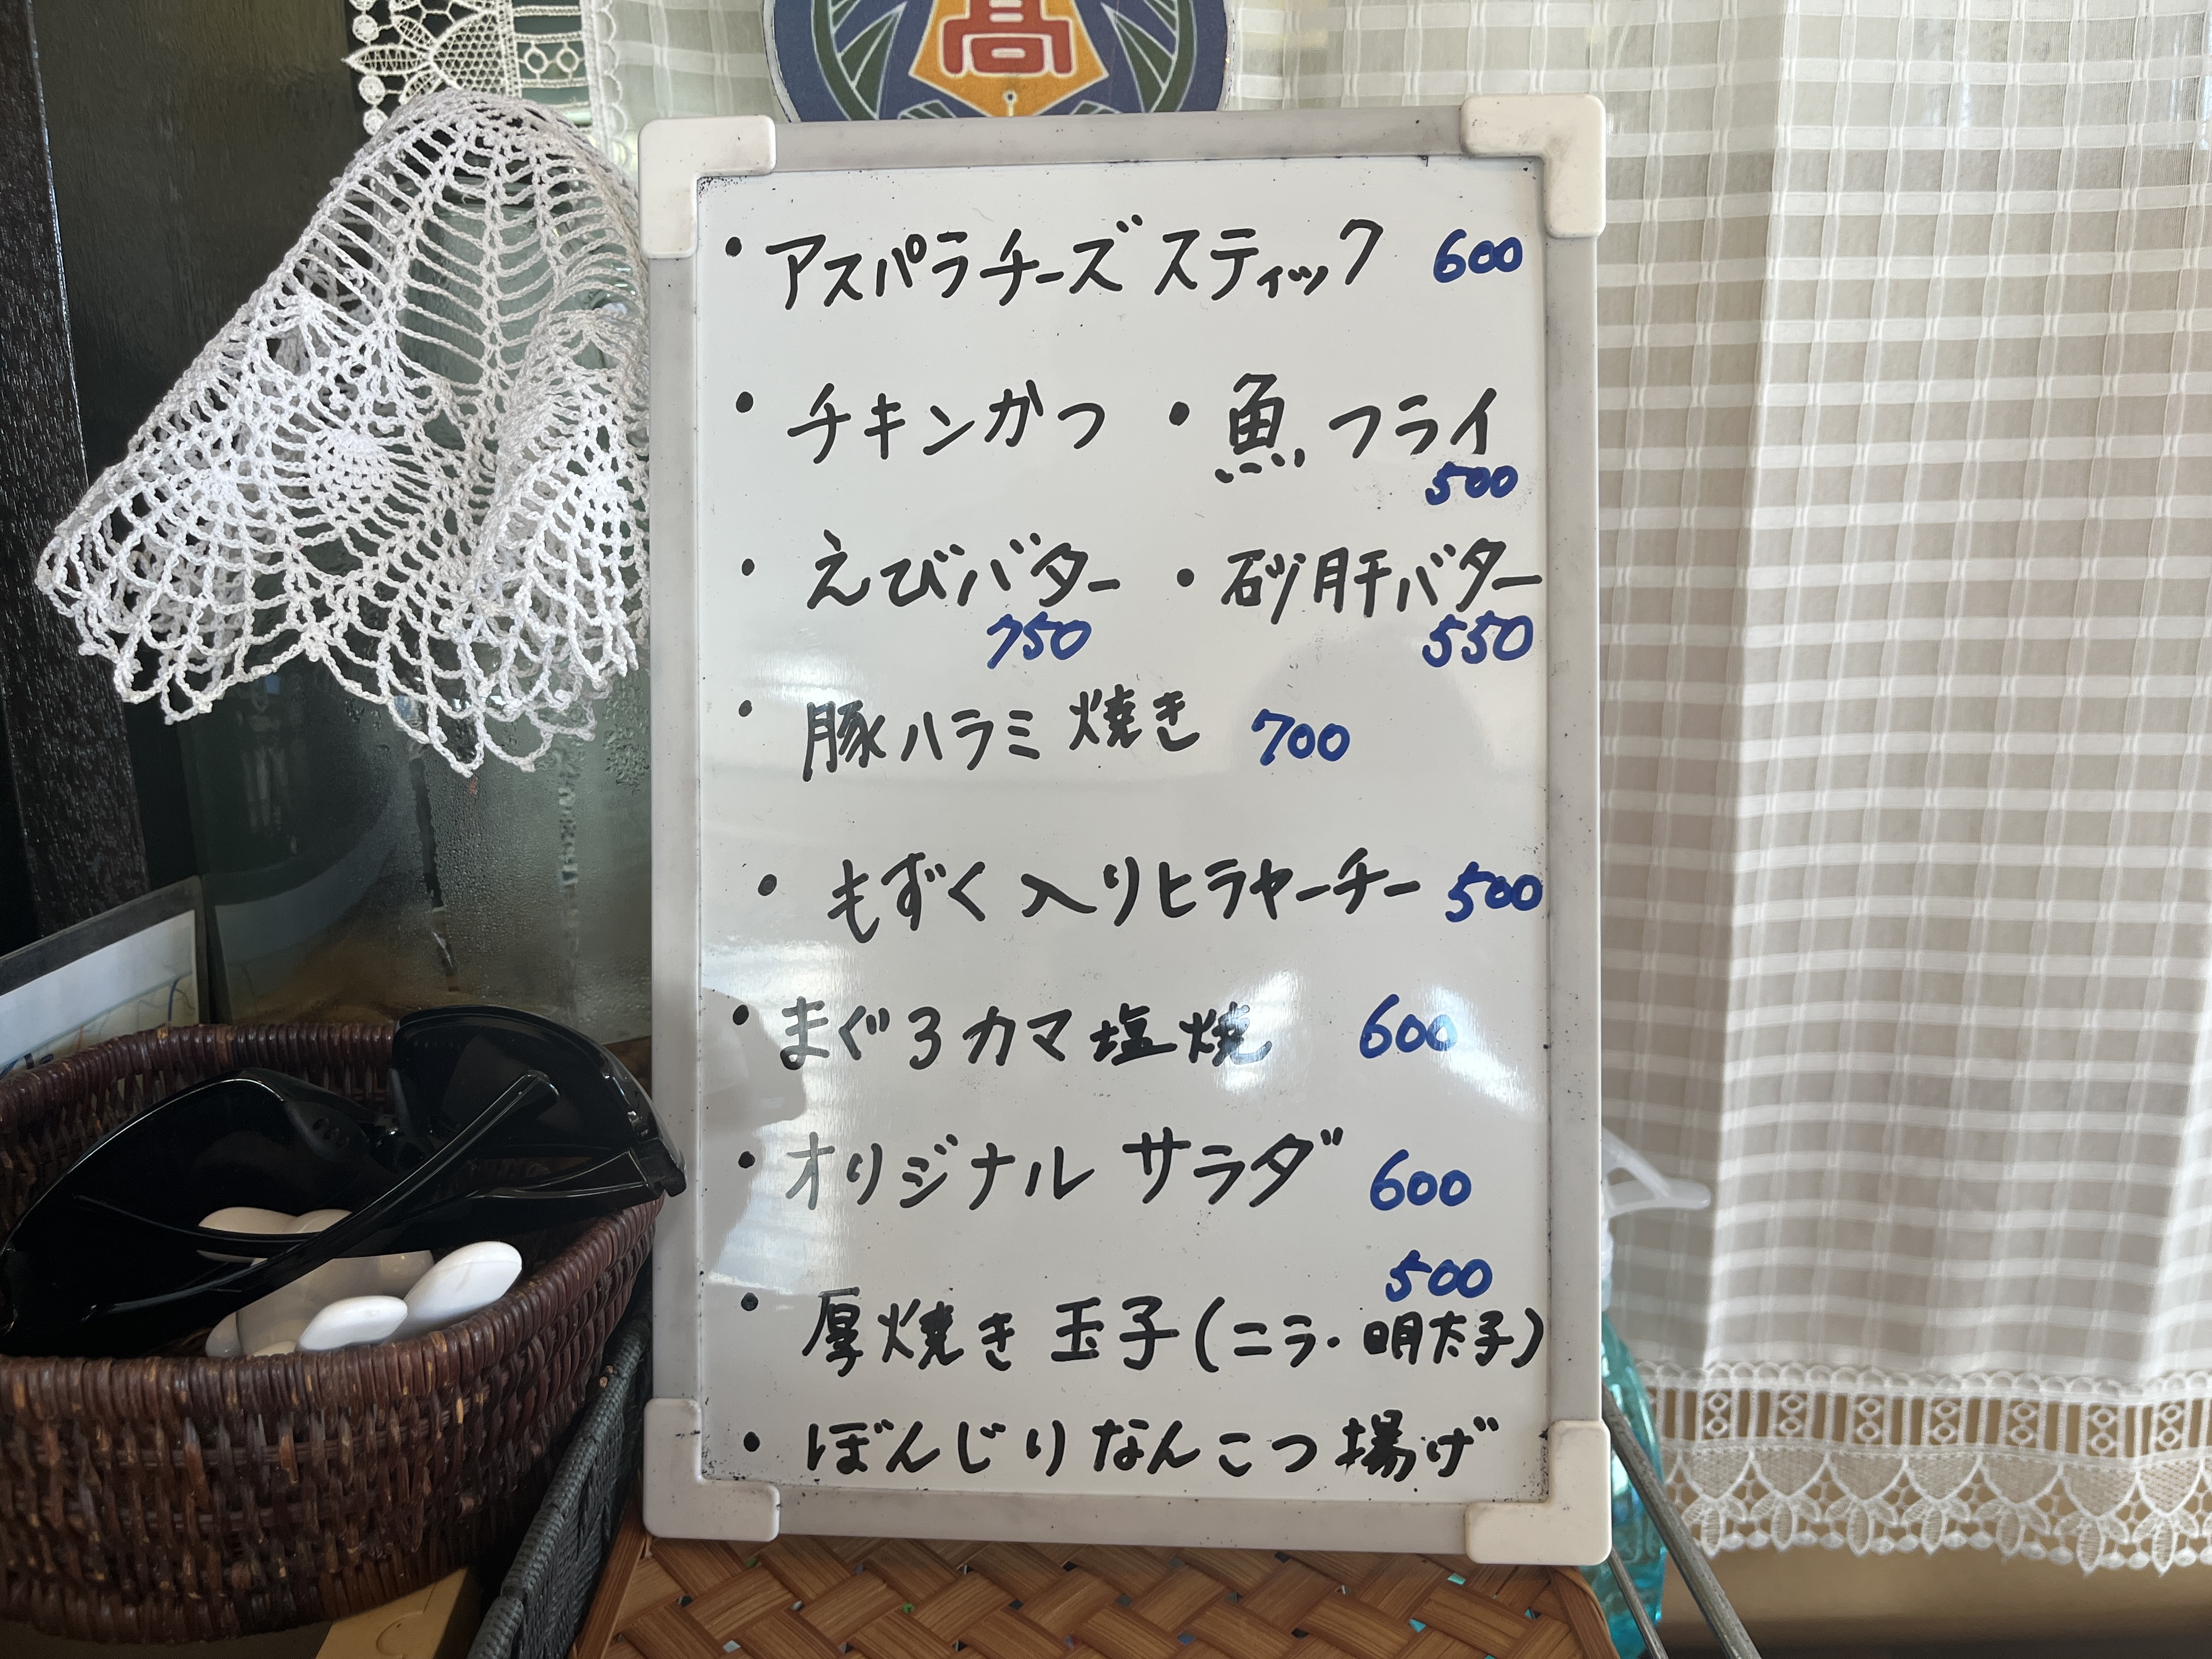 高
・アスパラチーズスティック 600
・チキンかつ ・魚フライ
500
・えびバター ・砂肝バター
750 550
・豚ハラミ焼き 700
・もずく入りヒラヤーチー 500
・まぐろカマ塩焼 600
・オリジナル サラダ 600
500
・厚焼き玉子(ニラ・明太子)
・ぼんじりなんこつ揚げ